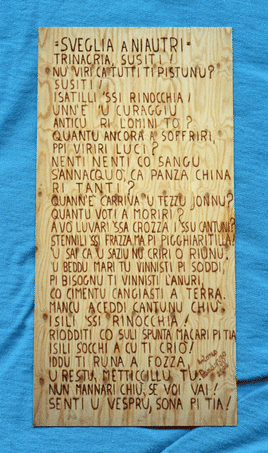 "SVEGLIA A NIAUTRI"
TRINACRIA, SUSITI!
NU' VIRI CA TUTTI TI PISTUNU?
SUSITI!
ISATILLI 'SSI RINOCCHIA!
UNN'E 'U CURAGGIU
ANTICU RI
QUANTU ANCORA A SOFFRIRI,
PPI VIRIRI LUCI?
NENTI NENTI CO SANGU
SANNACQUO', CA PANZA CHINA
RI TANTI?
QUANN'E C'ARRIVA 'U TEZZU JONNU?
QUANTU VOTI A MORIRI?
A VO LUVARI 'SSA CROZZA I SSU CANTUNI?
STENNILI SSI FRAZZA MA PI PIGGHIARITILLA!
U SAI CA U SAZIU NO CRIRI O RIUNU.
'U BEDDU MARI TU VINNISTI PI SODDI,
PI BISOGNU TI VINNISTI L'ANURI,
CO CIMENTU CANGIASTI A TERRA.
MANCU ACEDDI CANTUNU CHIU'.
ISILI SSI RINOCCHIA!
RIODDITI CO SULI SPUNTA MACARI PI TIA
ISILI SOCCHI A CU TI CRIO'!
IDDU TI RUNA A FOZZA,
U RESTU, METTICCILLU TU.
NUN MANNARI CHIU', SE VOI VAI!
SENTI U VESPRU, SONA PI TIA!